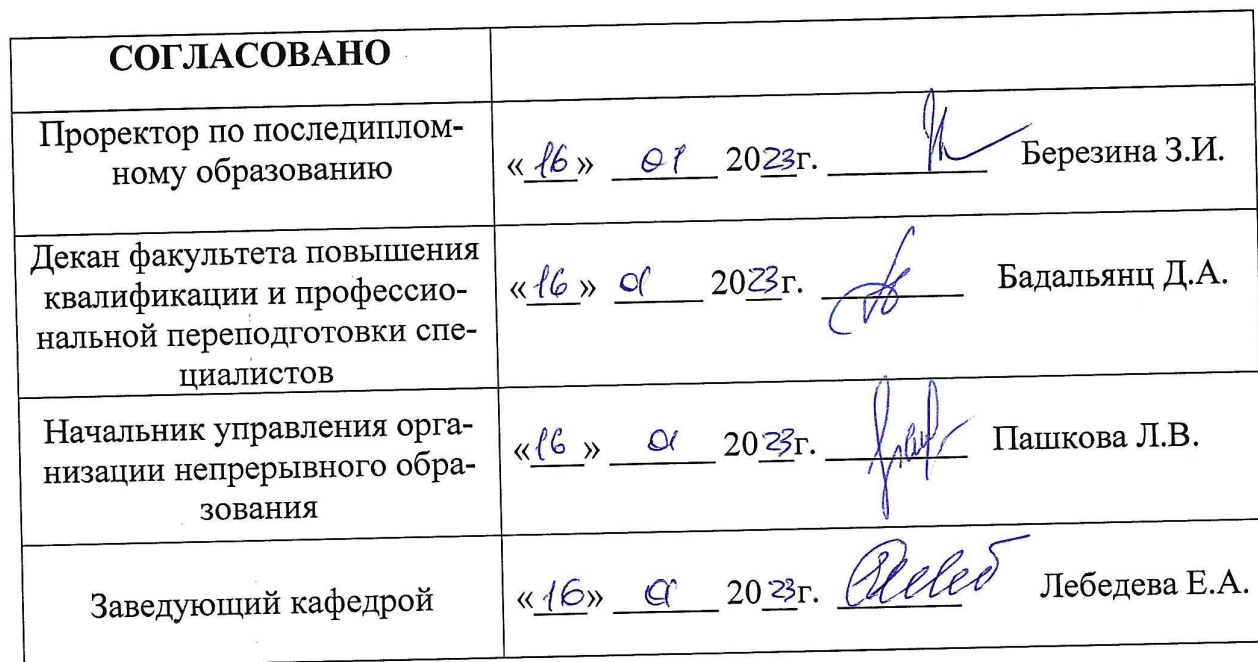 СОГЛАСОВАНО
Проректор по последиплом-
ному образованию
«16» 01 2023г. Березина З.И.
Декан факультета повышения
квалификации и профессио-
нальной переподготовки спе-
циалистов
«16» 01 2023г. Бадальянц Д.А.
Начальник управления орга-
низации непрерывного обра-
зования
«16» 01 2023г. Пашкова Л.В.
Заведующий кафедрой
«16» 01 2023г. Лебедева Е.А.